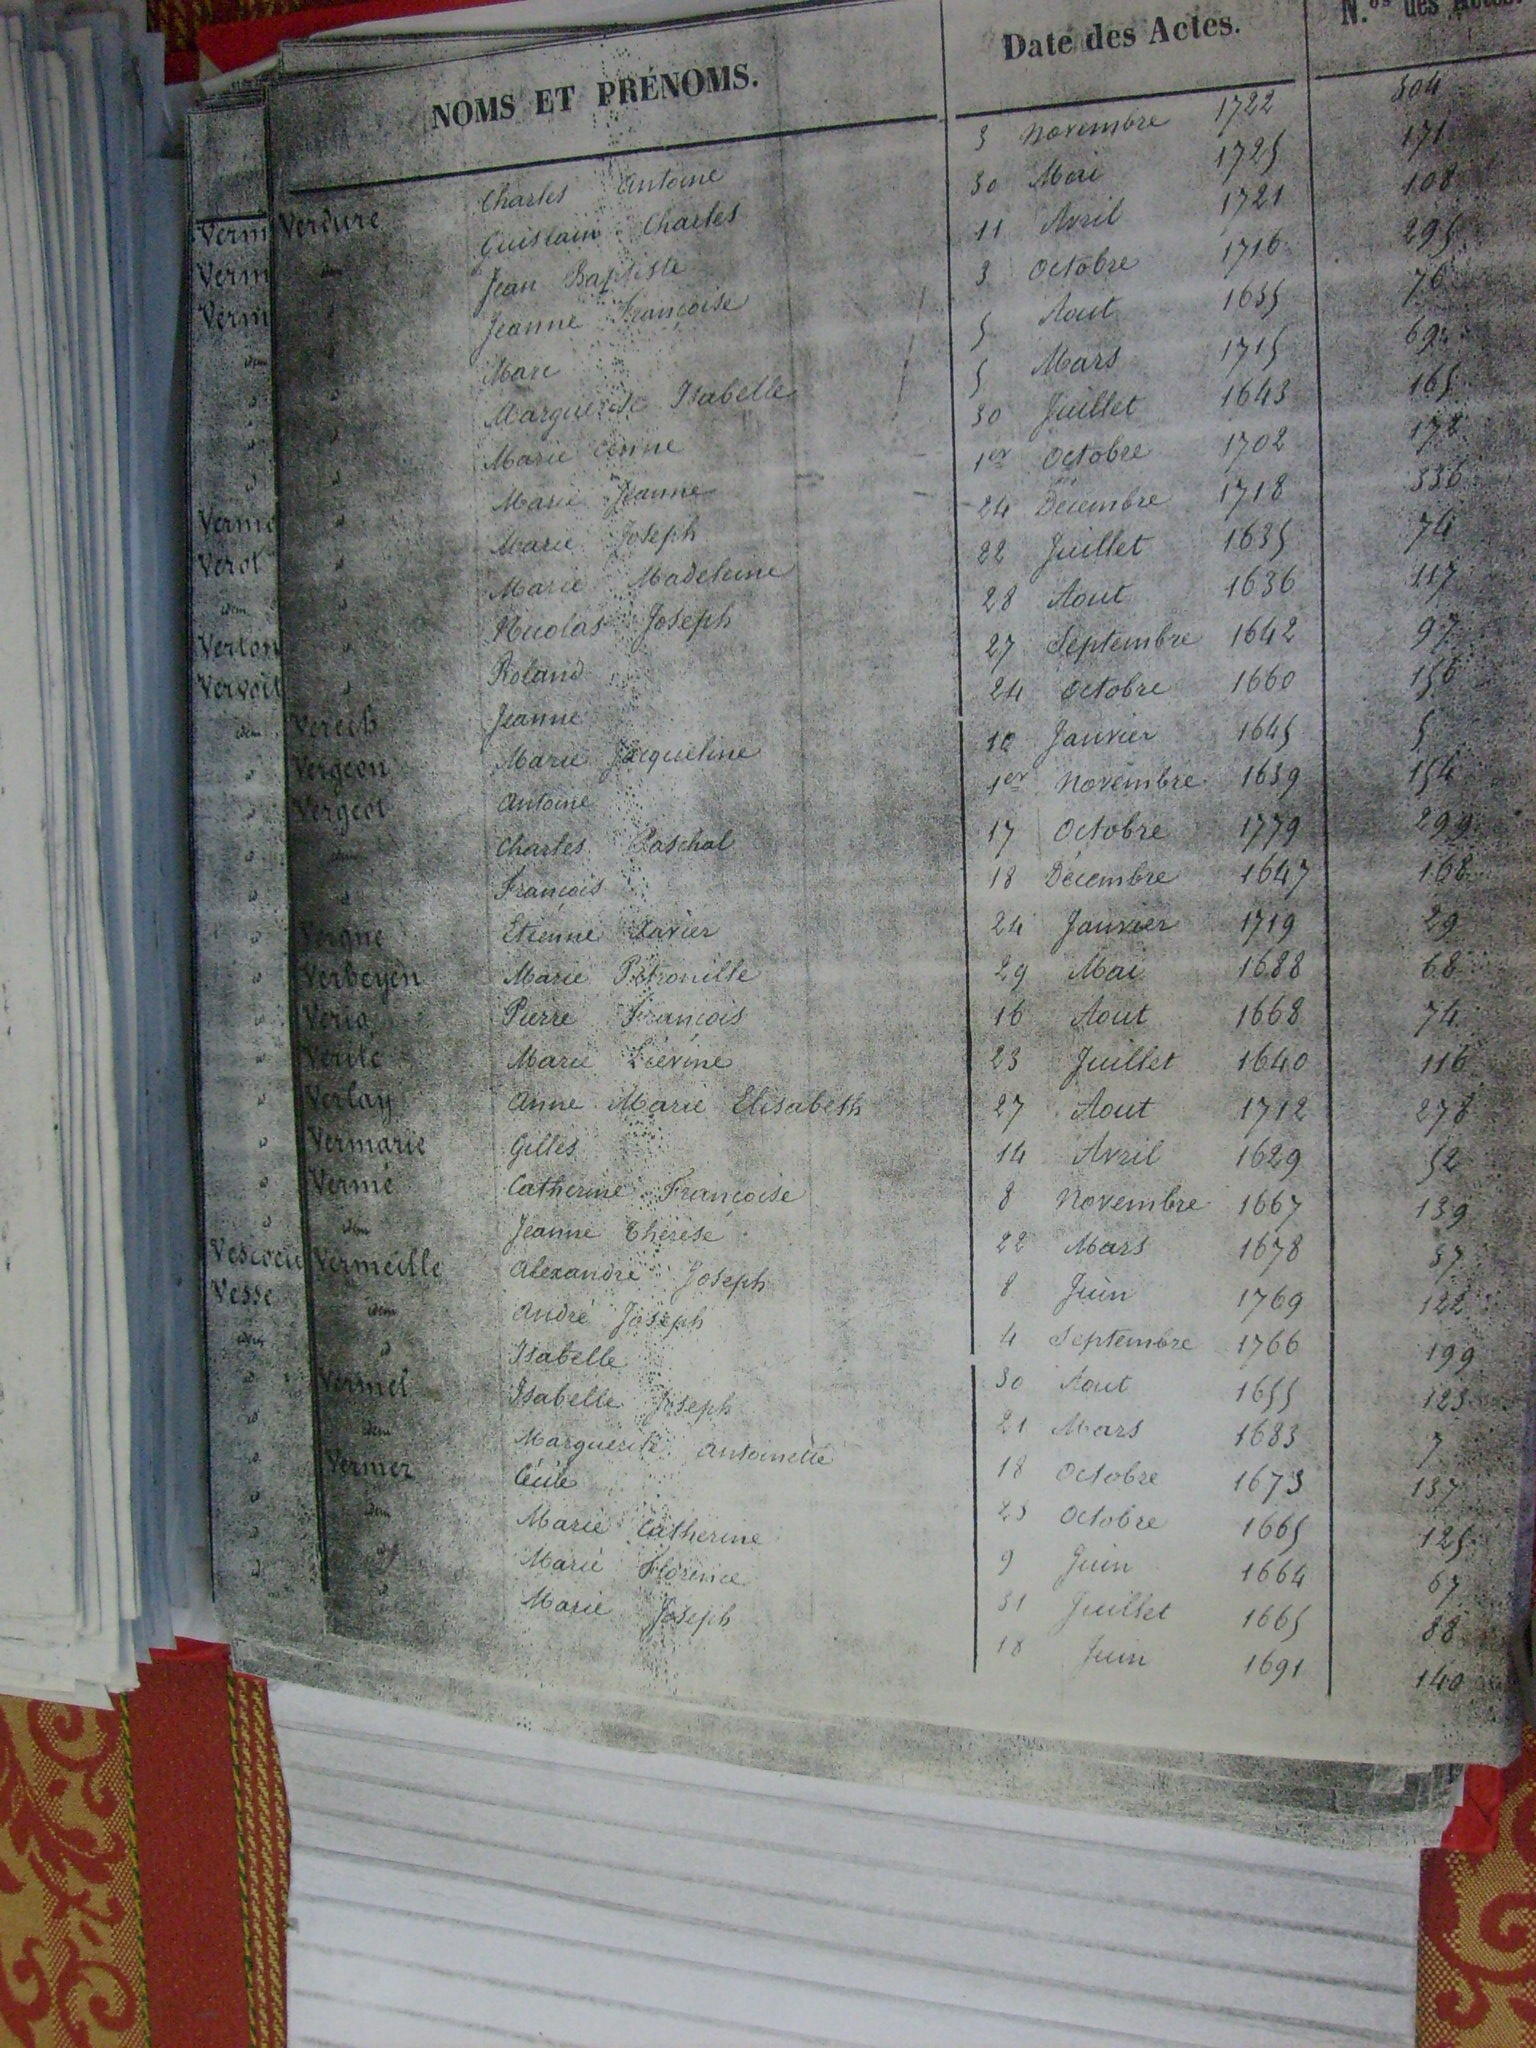 NOMS ET PRÉNOMS. Date des Actes. N.os des Actes.
Verdure Charles Antoine 3 Novembre 1722 304
idem Guislain Charles 30 Mai 1725 171
" Jean Baptiste 11 Avril 1721 108
" Jeanne Françoise 3 Octobre 1716 295
" Marc 5 Aout 1635 76
" Marguerite Isabelle 5 Mars 1715 69
" Marie Anne 30 Juillet 1643 165
" Marie Jeanne 1er Octobre 1702 172
" Marie Joseph 24 Décembre 1718 336
" Marie Madeleine 22 Juillet 1635 74
" Nicolas Joseph 28 Aout 1636 117
" Roland 27 Septembre 1642 97
Verech Jeanne 24 Octobre 1660 156
Vergeon Marie Jacqueline 10 Janvier 1645 5
Vergeot Antoine 1er Novembre 1639 154
idem Charles Paschal 17 Octobre 1779 299
" François 18 Décembre 1647 168
Vergne Etienne Xavier 24 Janvier 1719 29
Verheyen Marie Pétronille 29 Mai 1688 68
Pierre François 16 Aout 1668 74
Verité Marie Liévine 23 Juillet 1640 116
Verlay Anne Marie Elisabeth 27 Aout 1712 278
Vermarie Gilles 14 Avril 1629 52
Vermé Catherine Françoise 8 Novembre 1667 139
idem Jeanne Thérèse 22 Mars 1678 37
Vermeille Alexandre Joseph 8 Juin 1769 122
idem André Joseph 4 Septembre 1766 199
" Isabelle 30 Aout 1655 123
Vermel Isabelle Joseph 21 Mars 1683 7
idem Marguerite Antoinette 18 Octobre 1673 137
Vermez Cécile 23 Octobre 1665 125
idem Marie Catherine 9 Juin 1664 67
" Marie Florence 31 Juillet 1665 88
" Marie Joseph 18 Juin 1691 140
Verm
Verm
Verm
idem
Verme
Verot
idem
Verton
Vervoit
idem
Vesse
idem